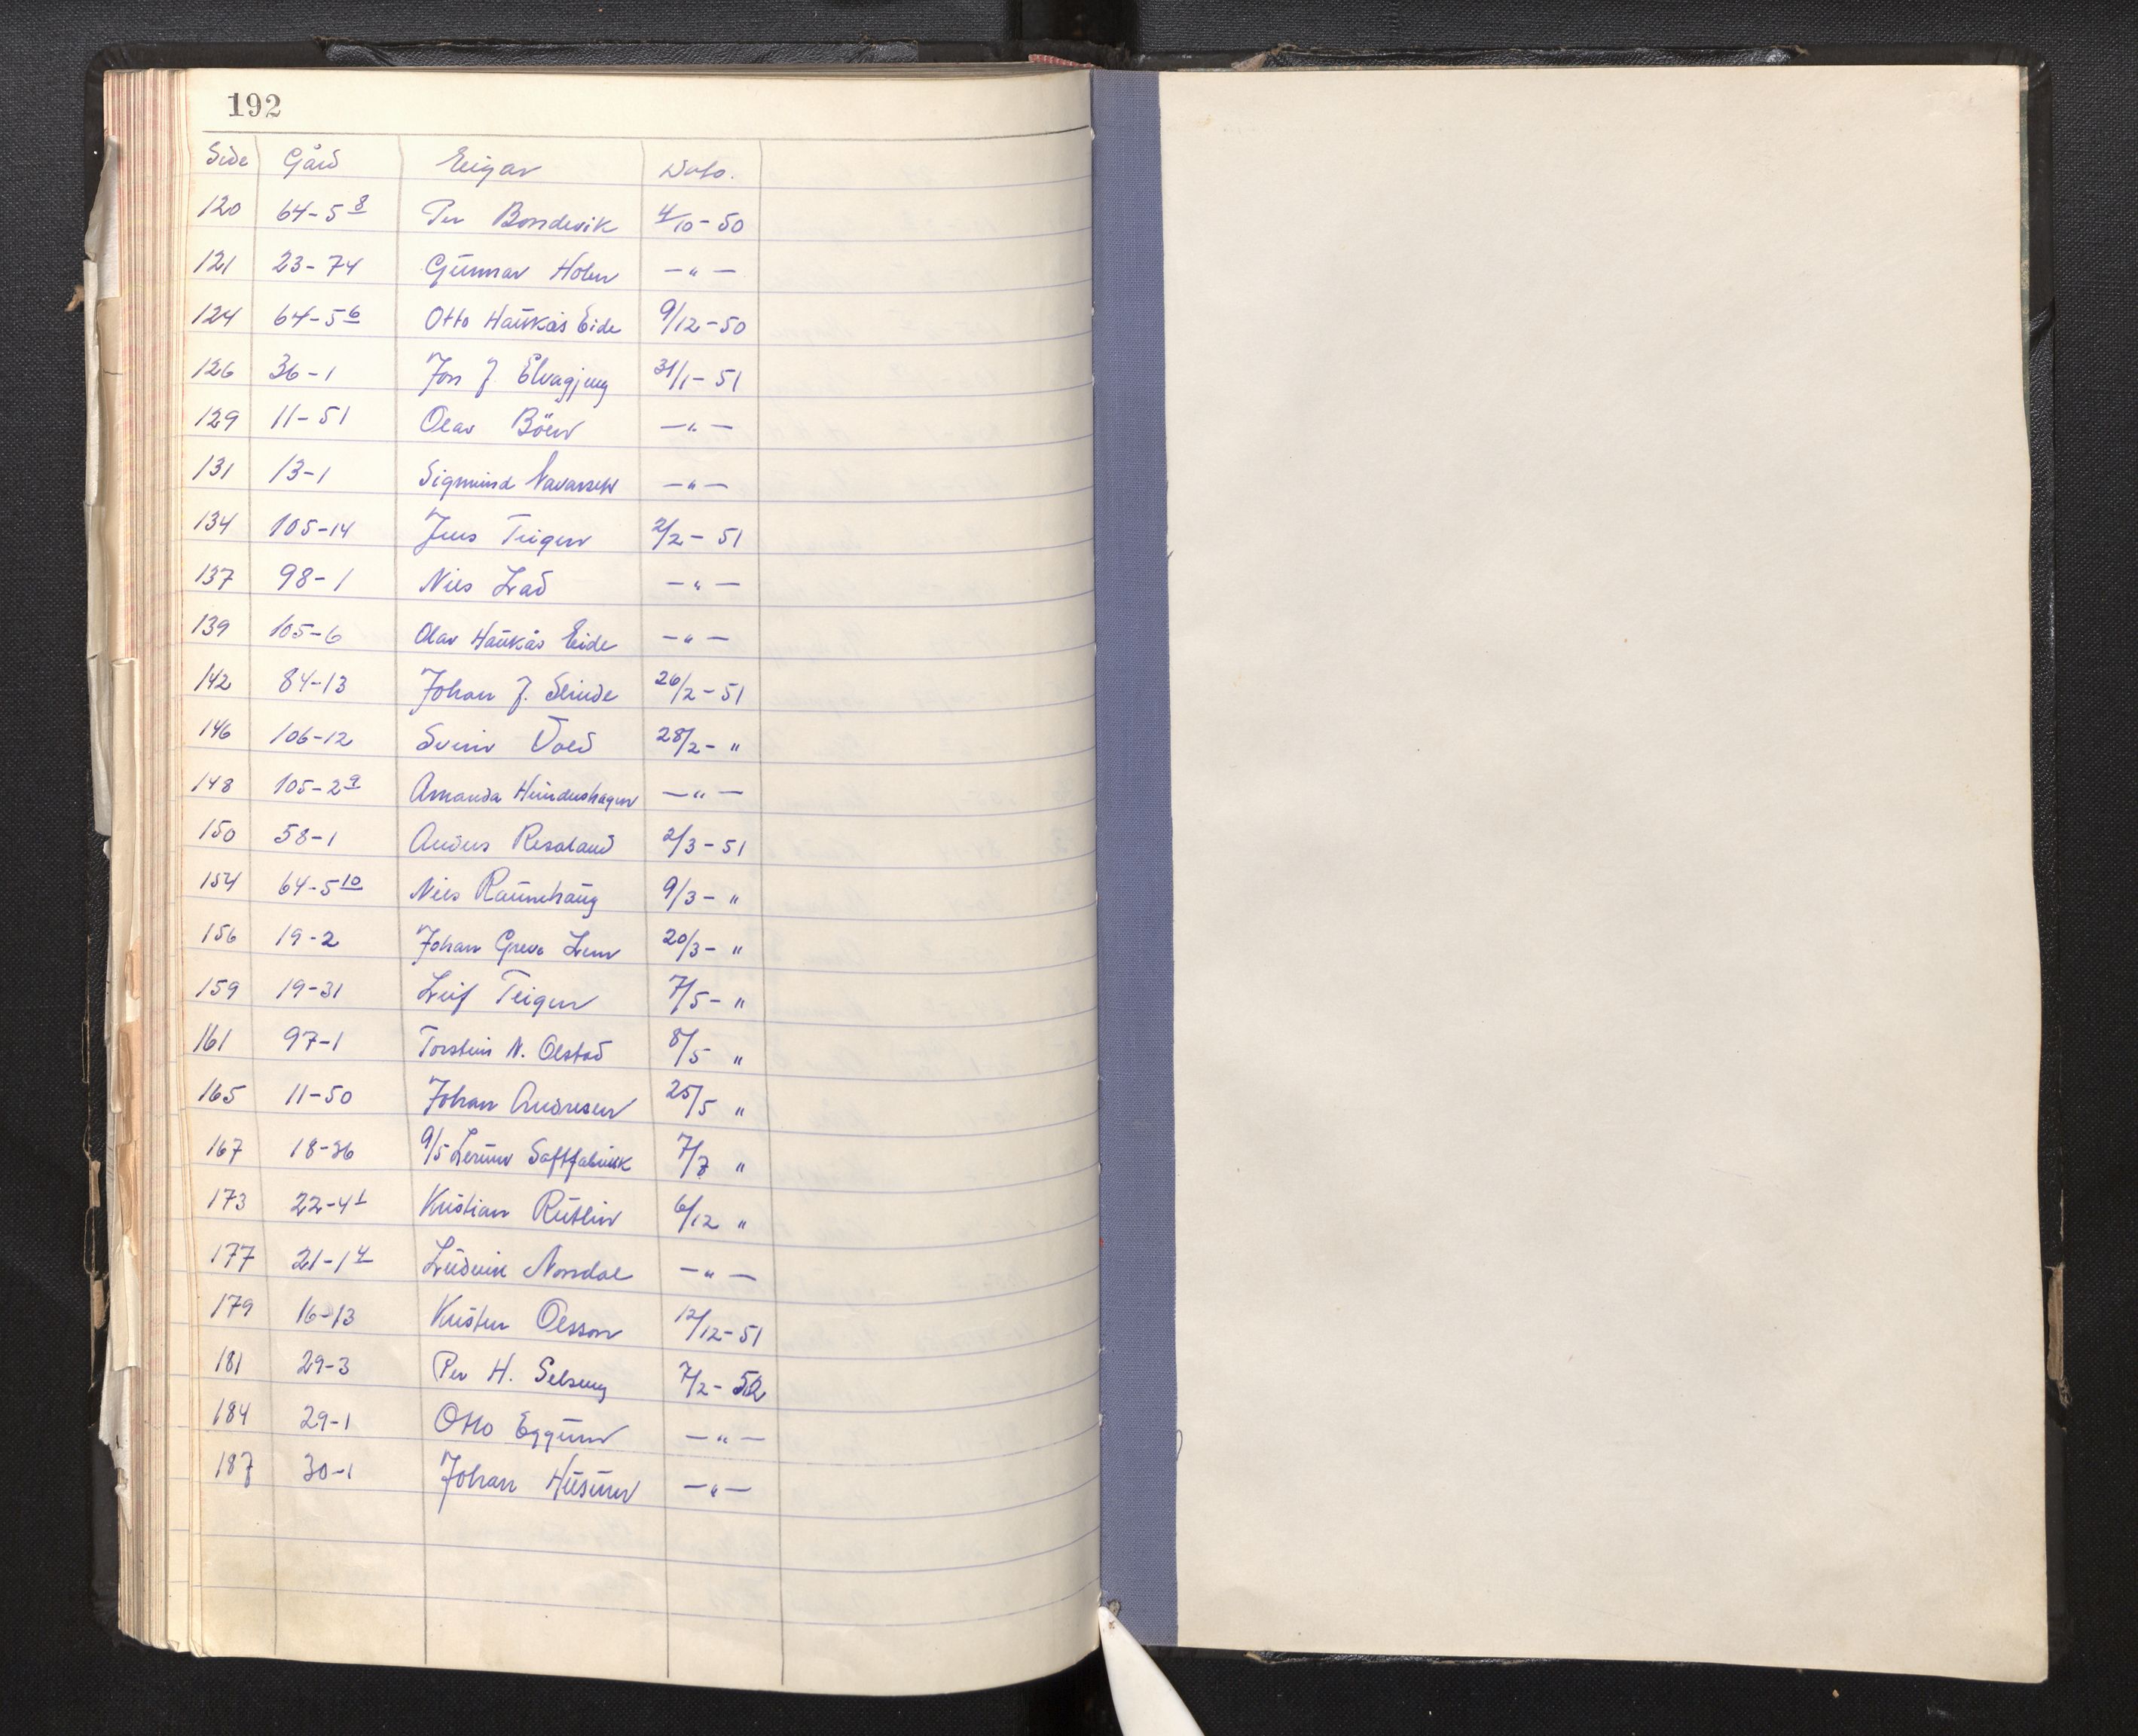 192
Side Gård Eigar Dato.
120 64-5 8 Per Bondevik 4/10-50
121 23-74 Gunnar Holen —"—
124 64-5 6 Otto Haukås Eide 9/12-50
126 36-1 Jon J. Elvagjeng 31/1-51
129 11-51 Olav Böen —"—
131 13-1 Sigmund Navarsete —"—
134 105-14 Jens Teigen 2/2-51
137 98-1 Nils Lad —"—
139 105-6 Olav Haukås Eide —"—
142 84-13 Johan J. Slinde 26/2-51
146 106-12 Svein Vold 28/2- "
148 105-2 9 Amanda Hundershagen —"—
150 58-1 Anders Resaland 2/3-51
154 64-5 10 Nils Raunehaug 9/3- "
156 19-2 Johan Greve Lem 20/3- "
159 19-31 Leif Teigen 7/5- "
161 97-1 Torstein N. Olstad 8/5 "
165 11-50 Johan Andresen 25/5 "
167 18-36 Lerum Saftfabrikk 7/7 "
173 22-4 1 Kristian Rutlin 6/12 "
177 21-1 4 Ludvik Norsdal —"—
179 16-13 Kristen Olsson 12/12-51
181 29-3 Per H. Selseng 7/2-52
184 29-1 Otto Eggum —"—
187 30-1 Johan Husum —"—